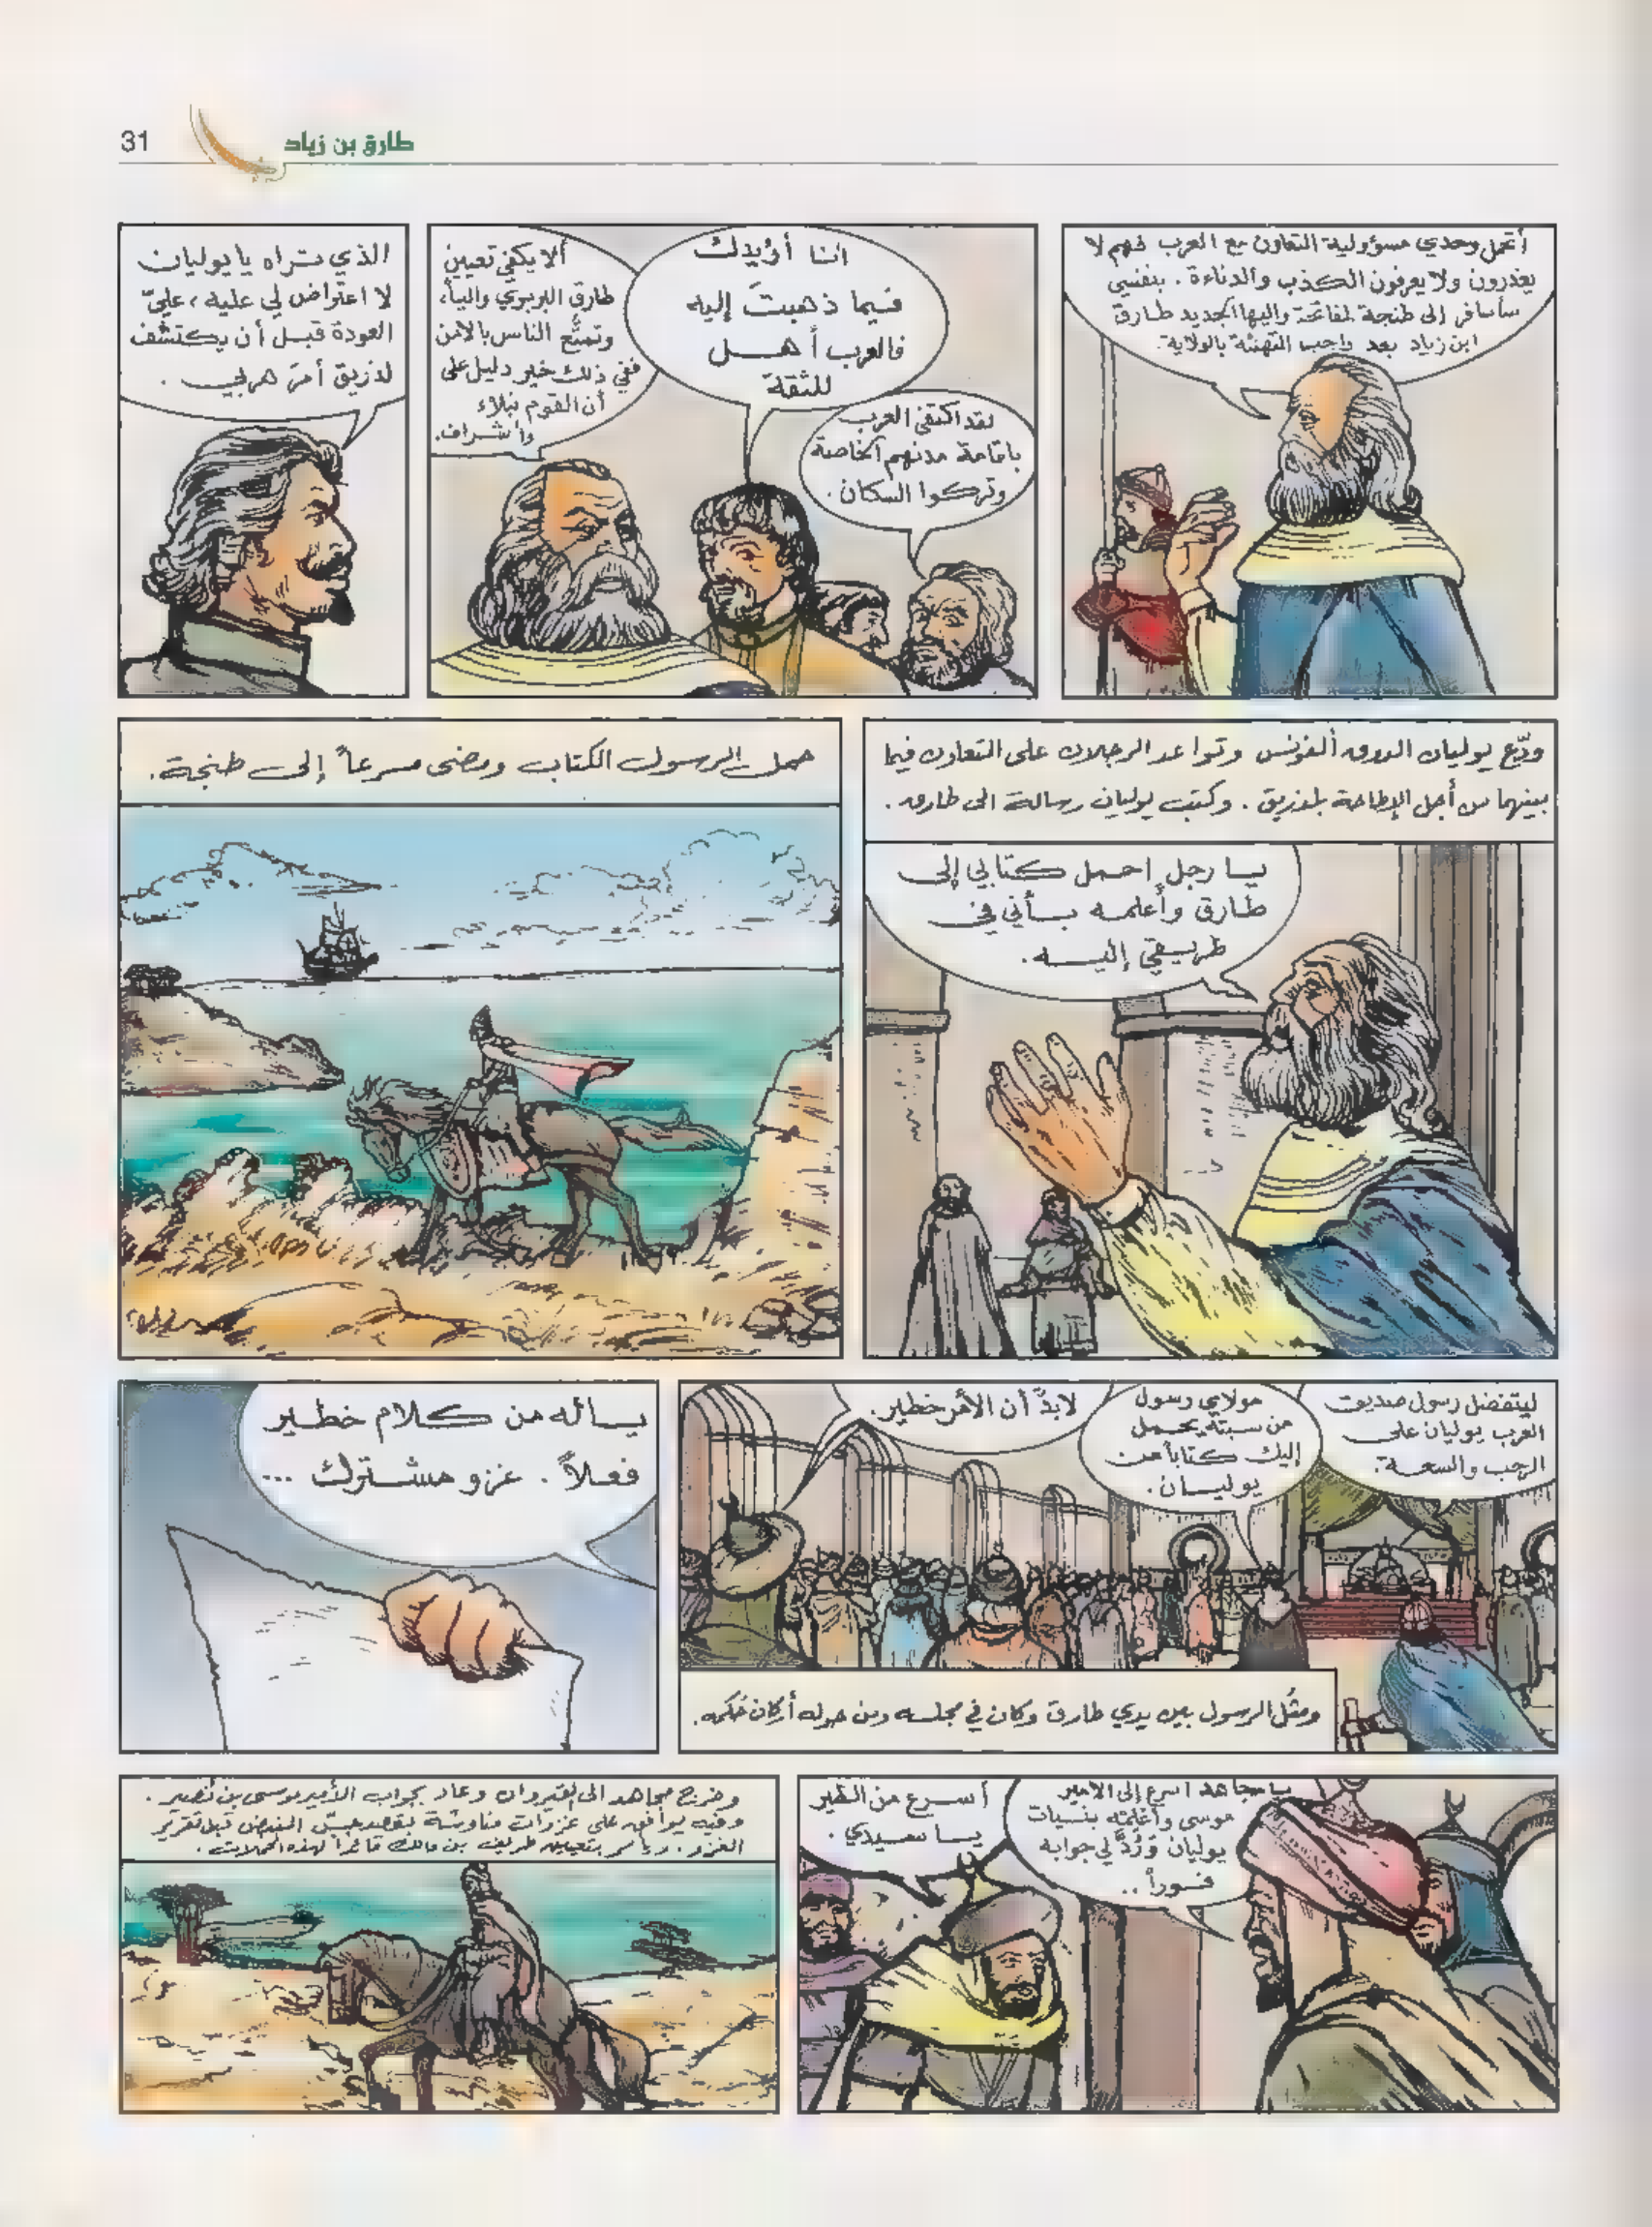 31
طارق بن زياد
أتحمل وحدي مسؤولية التعاون مع العرب فهم لا
يغدرون ولا يعرفون الكذب والدناءة . بنفسي
سأسافر إلى طنجة لمفاتحة واليها الجديد طارق
ابن زياد بعد واجب التهنئة بالولاية.
لقد اكتفى العرب
باقامة مدنهم الخاصة
وتركوا السكان .
أنا أؤيدك
فيما ذهبتَ إليه
فالعرب أهل
للثقة
ألا يكفي تعيين
طارق البربري والياً،
وتمتّع الناس بالأمن
ففي ذلك خير دليل على
أن القوم نبلاء
وأشراف.
الذي تراه يا يوليان
لا اعتراض لي عليه ، عليّ
العودة قبل أن يكتشف
لذريق أمر هربي .
ودّع يوليان الدوق ألفونس وتواعد الرجلان على التعاون فيما
بينهما من أجل الإطاحة بلوزريق . وكتب يوليان رسالة الى طارق .
يا رجل احمل كتابي إلى
طارق وأعلمه بأني في
طريقي إليه .
حمل الرسول الكتاب ومضى مسرعاً إلى طنجة .
ليتفضل رسول صديق
العرب يوليان على
الرحب والسعة .
مولاي رسول
من سبتة يحمل
إليك كتاباً من
يوليان .
لابدّ أن الأمر خطير .
ومثُل الرسول بين يدي طارق وكان في مجلسه ومن حوله أركان حُكمه .
يا له من كلام خطير
فعلاً . غزو مشترك ...
يا مجاهد اسرع إلى الامير
موسى وأعلمه بنيات
يوليان وَرُدَّ لي جوابه
فوراً ..
أسرع من الطير
يا سيدي .
وخرج مجاهد الى القيروان وعاد بجواب الأمير موسى بن نصير .
وفيه يوافق على غزوات مناوشة بقصد جسّ النبض قبل تقرير
الغزو . ويأمر بتعيين طريف بن مالك قائداً لهذه الحملات .